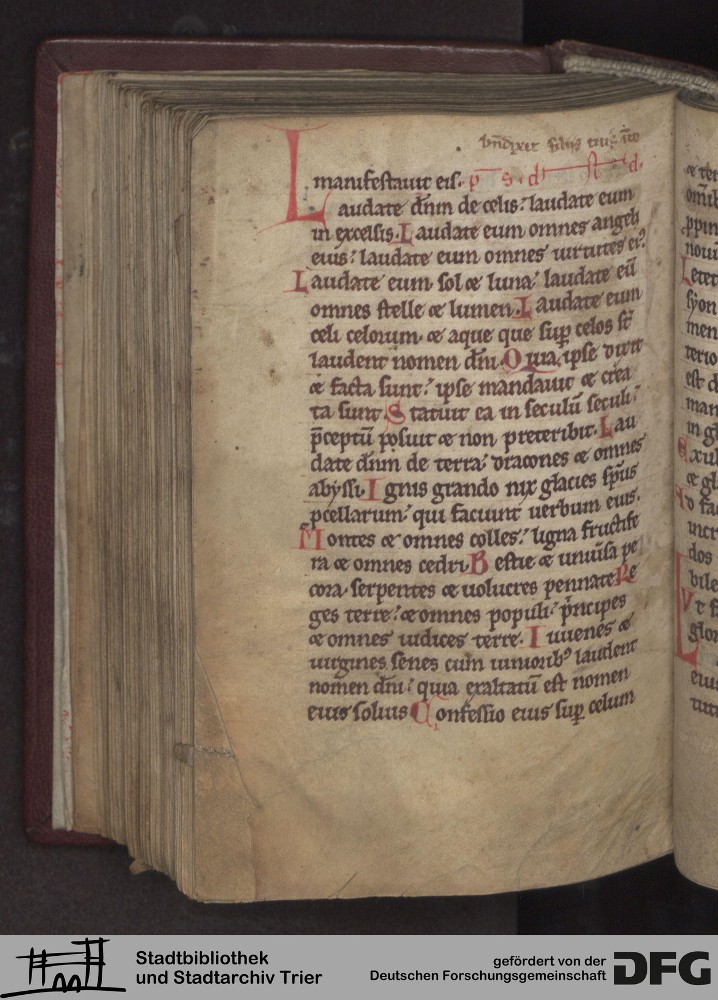 bn̄dixit filijs tuis in te
manifestauit eis. p̄ s. d d.
Laudate dn̄m de celis: laudate eum
in excelsis. Laudate eum omnes angeli
eius: laudate eum omnes uirtutes ei᷒
Laudate eum sol & luna: laudate eū
omnes stelle & lumen. Laudate eum
celi celorum. & aque que suꝑ celos st̄
laudent nomen dn̄i. Quia ipse dixit
& facta sunt: ipse mandauit & crea
ta sunt. Statuit ea in seculū seculi:
p̄ceptū posuit & non preteribit. Lau
date dn̄m de terra: dracones & omnes
abyssi. Ignis grando nix glacies sp̄us
ꝓcellarum: qui faciunt uerbum eius.
Montes & omnes colles: ligna fructife
ra & omnes cedri. Bestie & uniūsa pe
cora. serpentes & uolucres pennate. Re
ges terre: & omnes populi: p̄ncipes
& omnes iudices terre. Iuuenes &
uirgines senes cum iuniorib᷒ laudent
nomen dn̄i: quia exaltatū est nomen
eius solius Confessio eius suꝑ celum
Stadtbibliothek
und Stadtarchiv Trier
gefördert von der
Deutschen Forschungsgemeinschaft
DFG